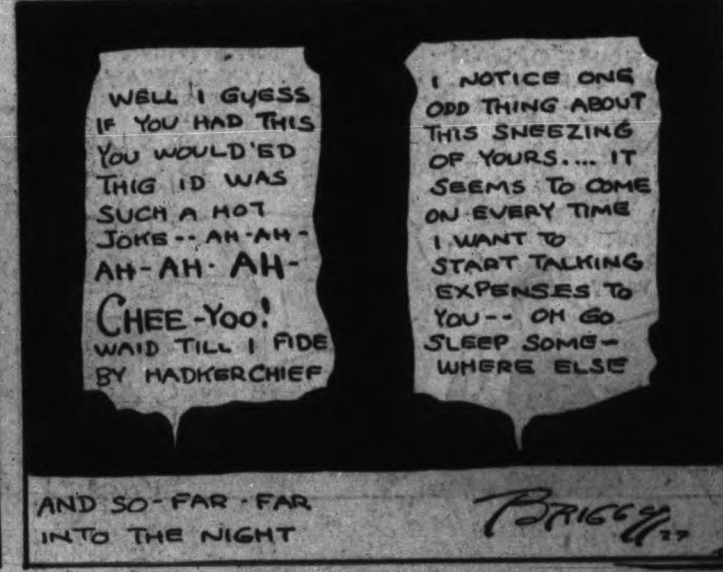 WELL I GUESS
IF YOU HAD THIS
YOU WOULD'ED
THIG ID WAS
SUCH A HOT
JOKE-- AH-AH-
AH-AH- AH-
CHEE-YOO!
WAID TILL I FIDE
BY HADKERCHIEF
I NOTICE ONE
ODD THING ABOUT
THIS SNEEZING
OF YOURS.... IT
SEEMS TO COME
ON EVERY TIME
I WANT TO
START TALKING
EXPENSES TO
YOU-- OH GO
SLEEP SOME-
WHERE ELSE
AND SO-FAR-FAR
INTO THE NIGHT
BRIGGS 27